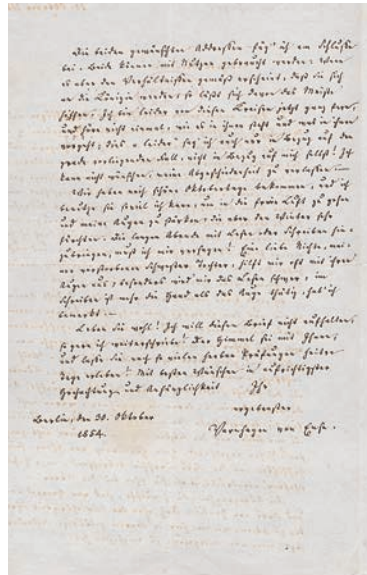 Die beiden gewünschten Addressen füg' ich am Schlusse
bei. Beide können mit Nutzen gebraucht werden. Wenn
es aber den Verhältnissen gemäß erscheint, daß Sie sich
an die Königin wenden, so läßt sich davon das Meiste
hoffen. Ich bin leider von diesen Kreisen jetzt ganz fern,
und höre nicht einmal, wie es in ihnen steht und was in ihnen
vorgeht; dies „leider" sag' ich auch nur in Bezug auf den
grade vorliegenden Fall, nicht in Bezug auf mich selbst! Ich
kann nicht wünschen, meine Abgeschiedenheit zu verlassen. —
Wir haben noch schöne Oktobertage bekommen, und ich
benutze sie soviel ich kann, um in die freie Luft zu gehen
und meine Augen zu stärken, die aber den Winter sehr
fürchten. Die langen Abende mit Lesen oder Schreiben hin-
zubringen, muß ich mir versagen! Eine liebe Nichte, mei-
ner verstorbenen Schwester Tochter, hilft mir oft mit ihren
Augen aus; besonders wird mir das Lesen schwer; im
Schreiben ist mehr die Hand als das Auge thätig, hab' ich
bemerkt. —
Leben Sie wohl! Ich will diesen Brief nicht aufhalten,
so gern ich weiterschriebe! Der Himmel sei mit Ihnen,
und lasse Sie nach so vielen herben Prüfungen heitre
Tage erleben! Mit besten Wünschen in aufrichtigster
Hochachtung und Anhänglichkeit Ihr
ergebenster
Berlin, den 30. Oktober
1854.
Varnhagen von Ense.